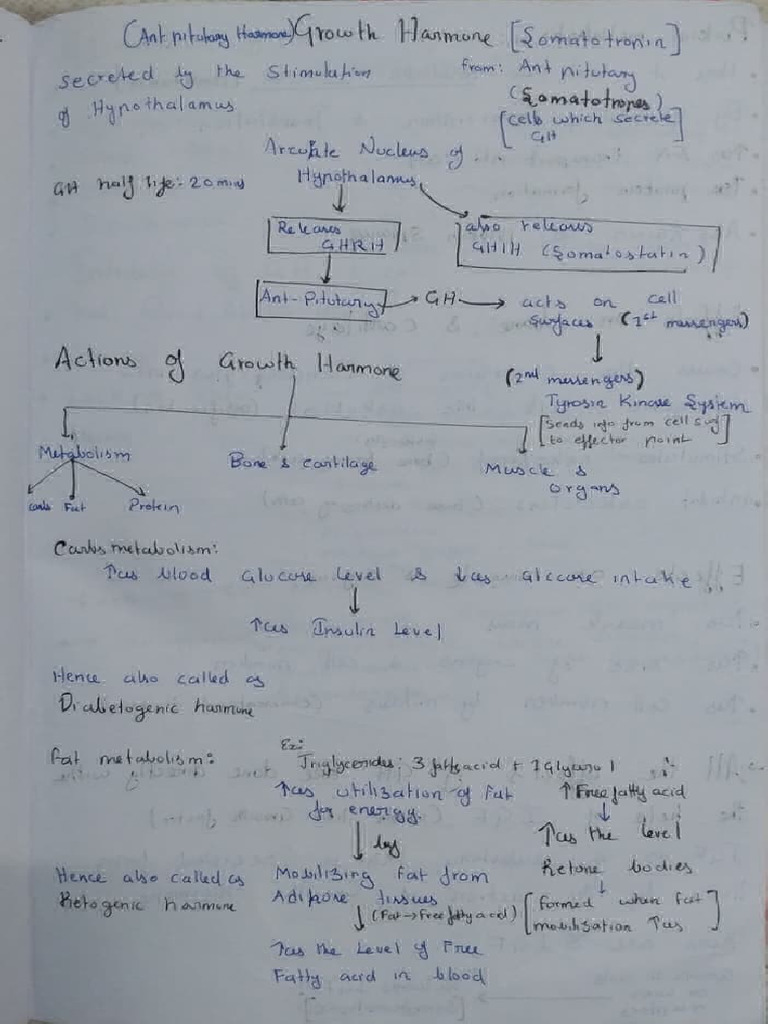 (Ant pitutary Harmone) Growth Harmone [Somatotronin]
secreted by the Stimulation
of Hypothalamus
from: Ant pitutary
(Somatotropes)
[cells which secrete
GH]
Arcuate Nucleus of
Hypothalamus
GH half life: 20 mins
Releases
GHRH
also releases
GHIH (Somatostatin)
Ant-Pitutary → GH → acts on cell
surfaces (1st messengers)
Actions of Growth Harmone
(2nd messengers)
Tyrosin Kinase System
[Sends info from cell surf
to effector point]
Metabolism
Bone & cartilage
Muscle &
organs
Carbs Fat Protein
Carbs metabolism:
↑ces blood Glucose level & ↓ces Glucose intake
↑ces Insulin Level
Hence also called as
Diabetogenic harmone
Fat metabolism:
Ex:
Triglycerides: 3 fatty acid + 1 Glycerol
↑ces utilization of Fat
for energy.
↑ Free fatty acid
↑ces the level
by
Ketone bodies
Hence also called as
Ketogenic harmone
Mobilizing fat from
Adipose tissues
(Fat → Free fatty acid)
[formed when fat
mobilisation ↑ces]
↑ces the Level of Free
Fatty acid in blood